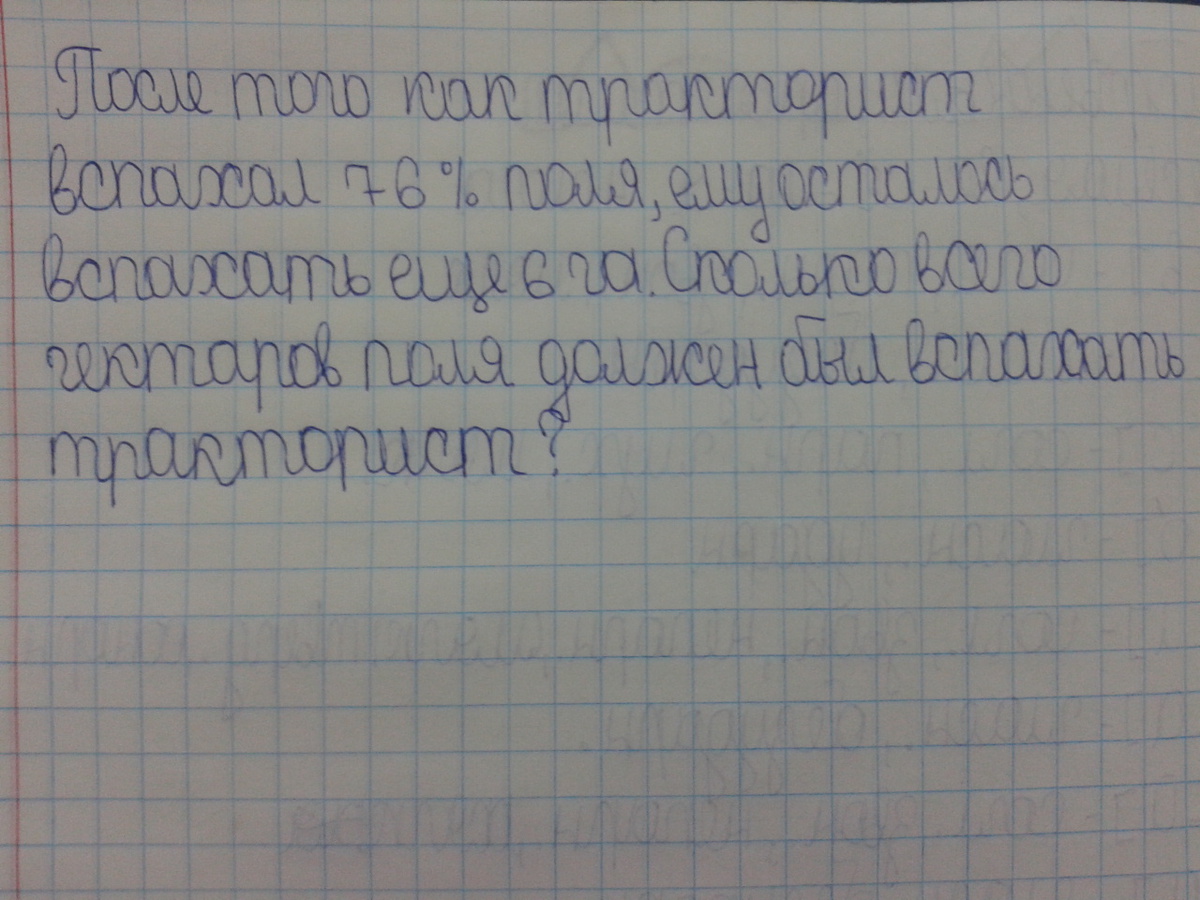 После того как тракторист
вспахал 76% поля, ему осталось
вспахать еще 6 га. Сколько всего
гектаров поля должен был вспахать
тракторист?